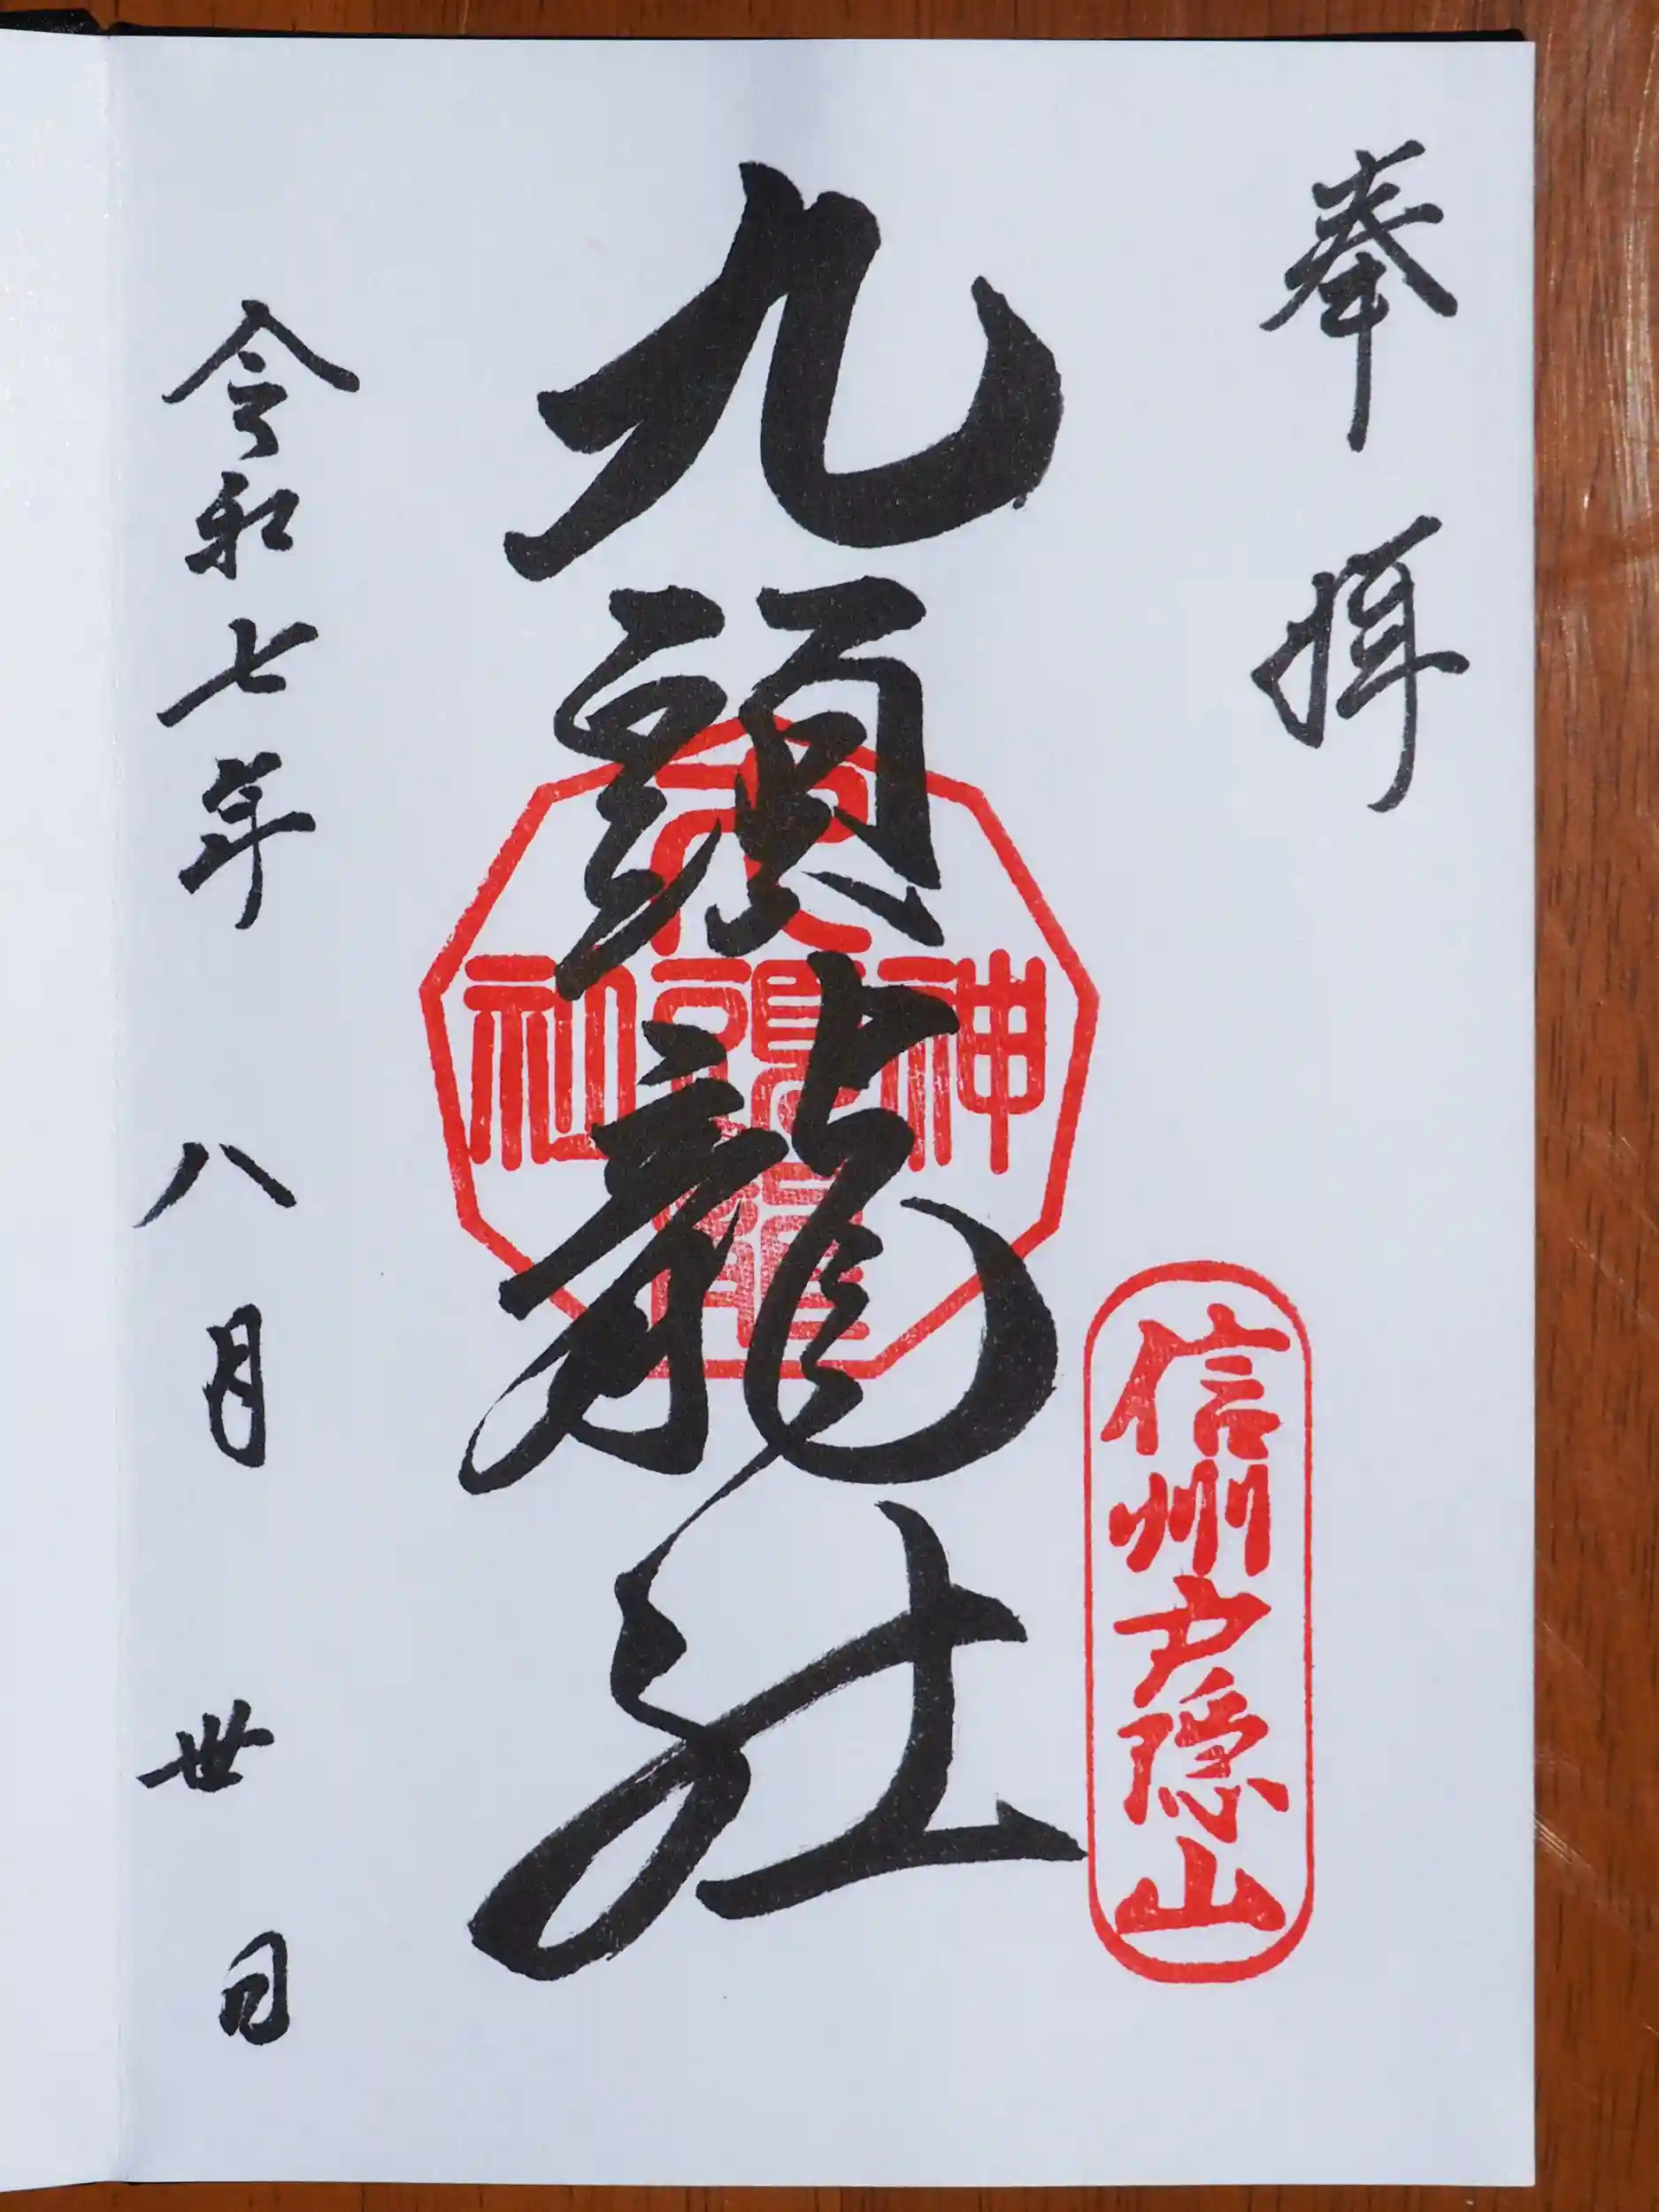 奉拝
信州戸隠山
九頭龍社
神
九頭龍
社
令和七年 八月 卅日